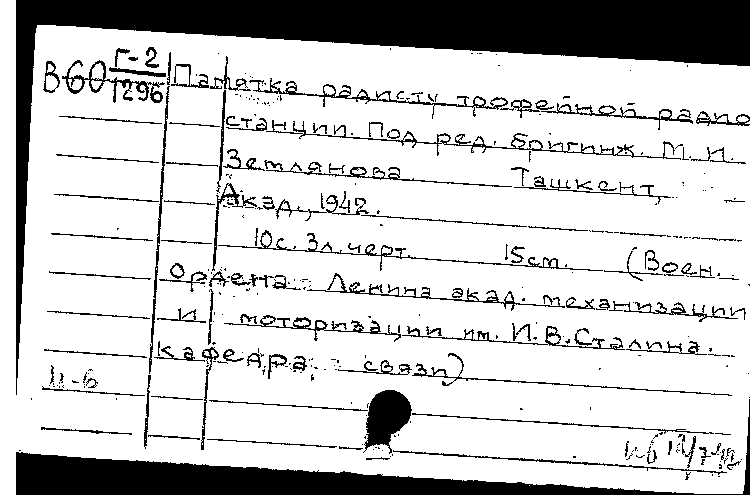 В60 Г-2/1296 Памятка радисту трофейной радио
станции. Под ред. бригинж. М. И.
Землянова. Ташкент,
Акад., 1942.
10с. 3л. черт. 15см. (Воен.
ордена Ленина акад. механизации
и моторизации им. И.В.Сталина.
кафедра связи)
И-6